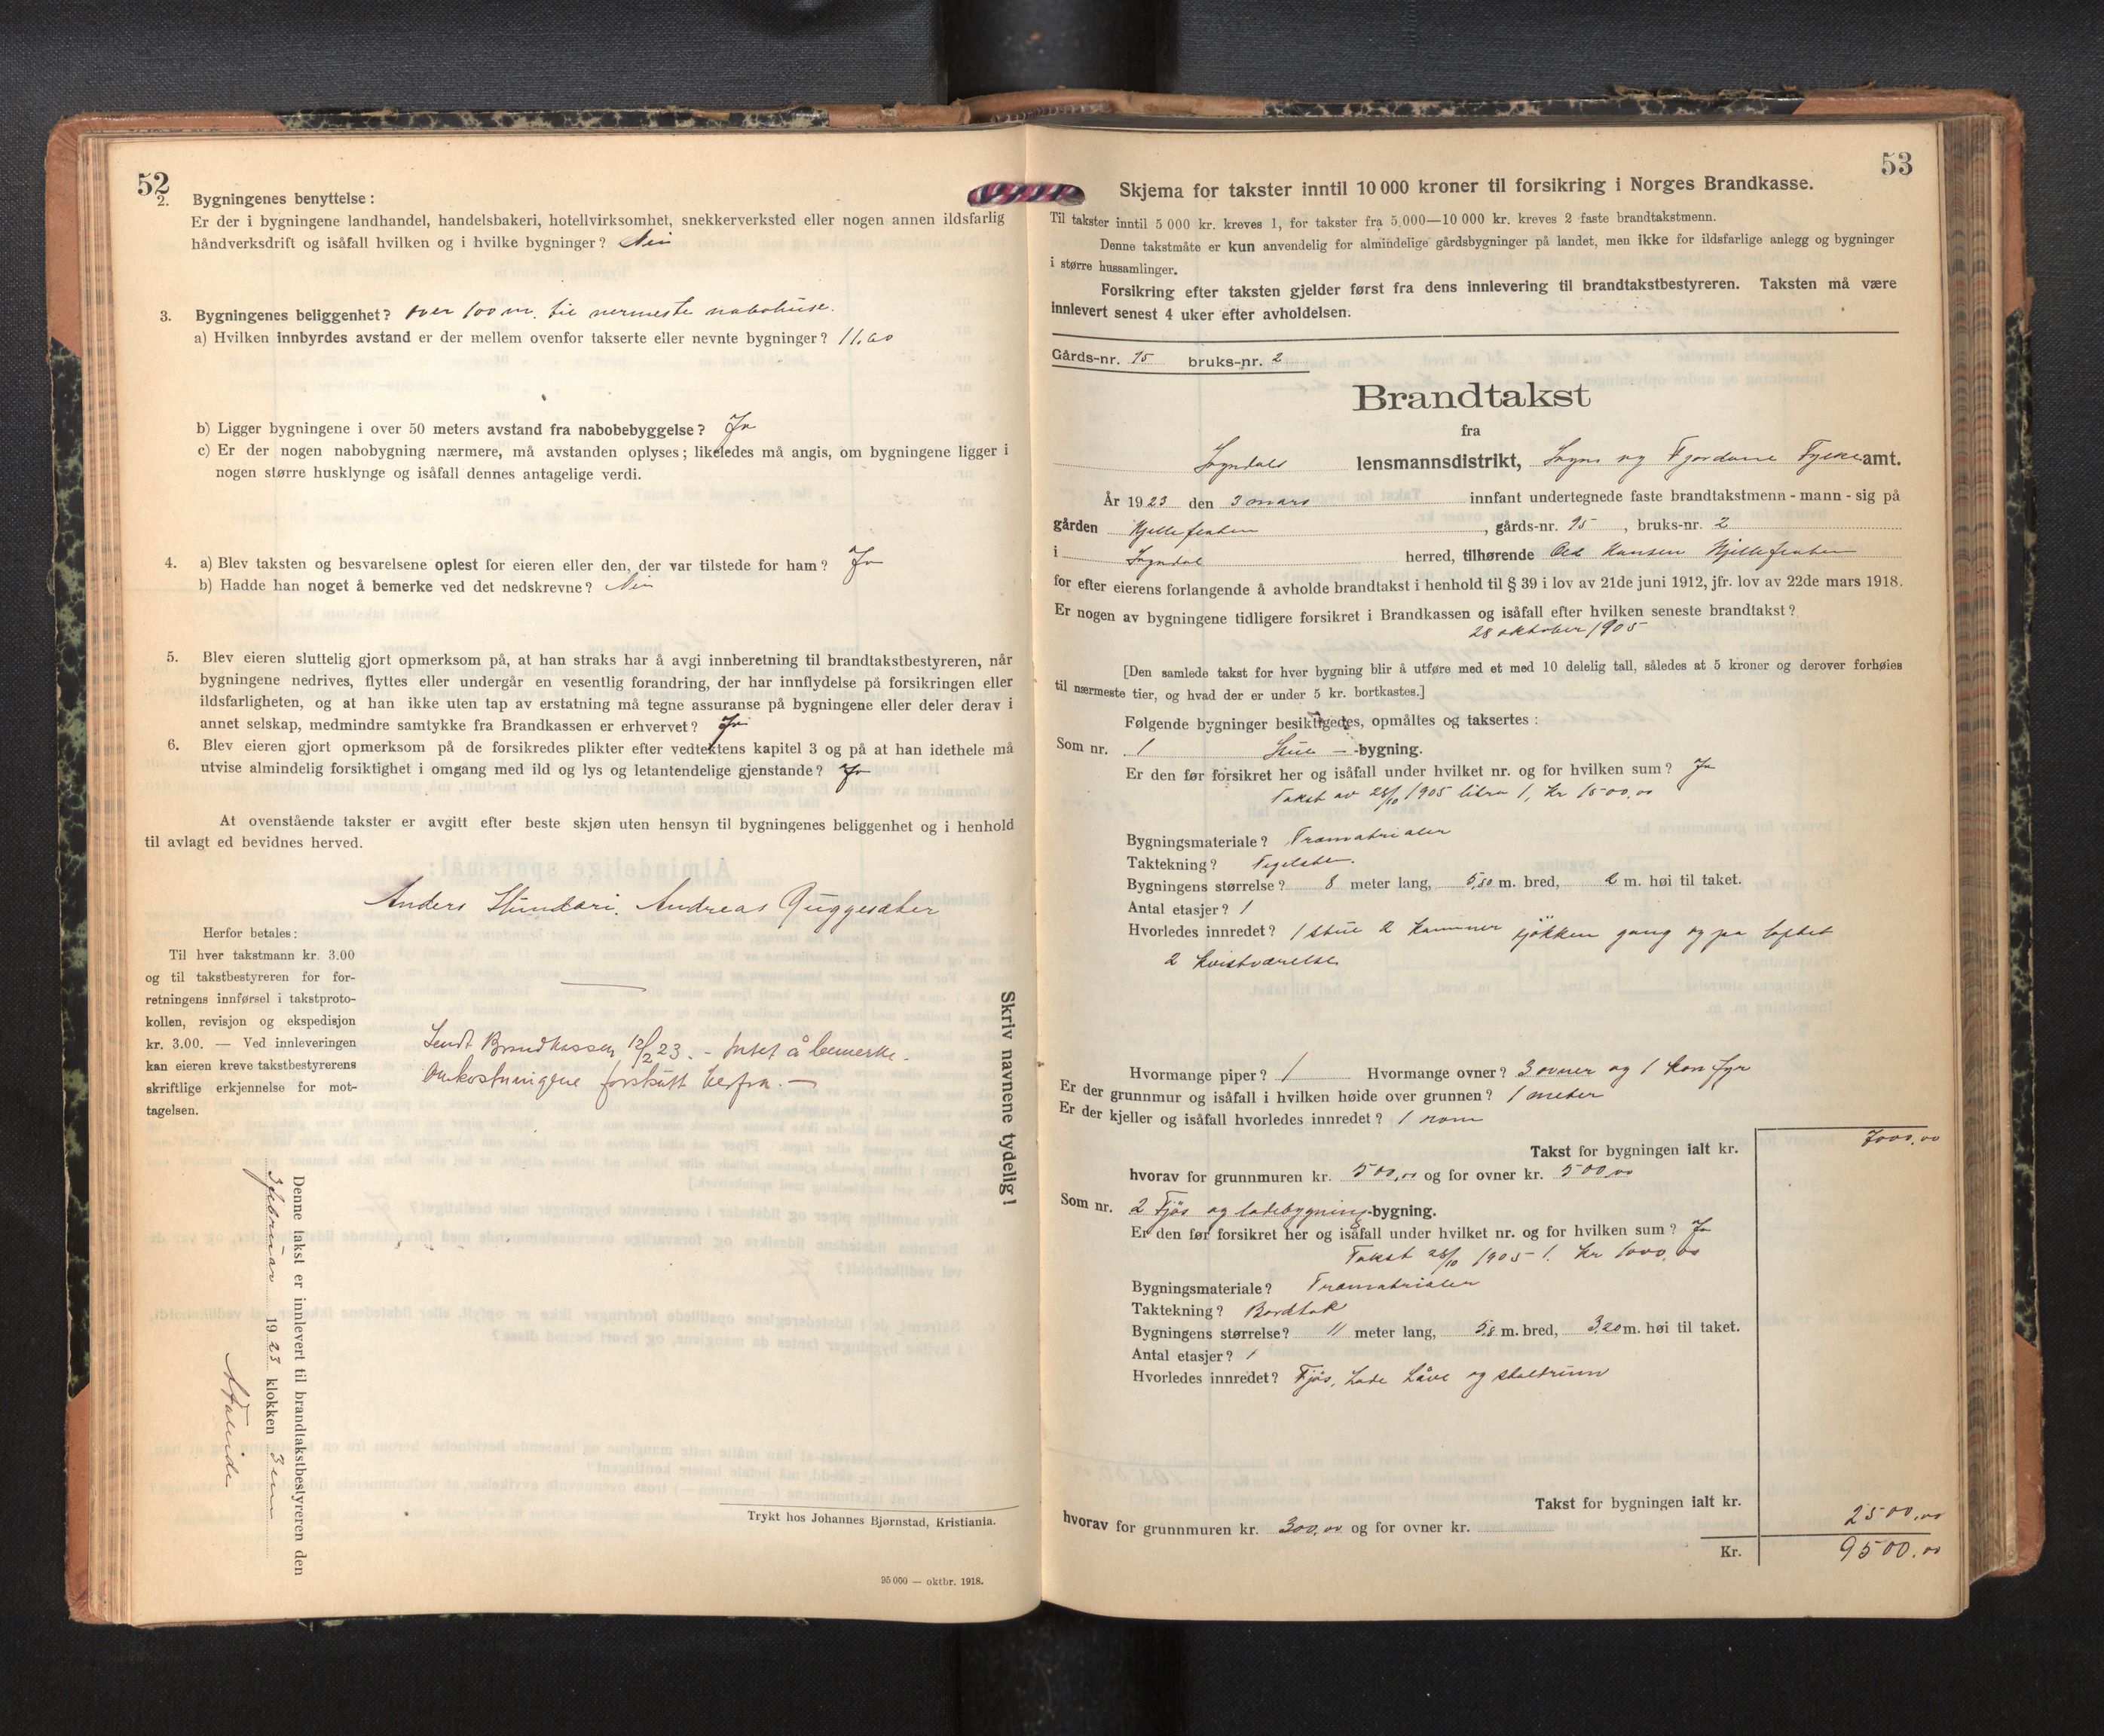 52
2. Bygningenes benyttelse:
Er der i bygningene landhandel, handelsbakeri, hotellvirksomhet, snekkerverksted eller nogen annen ildsfarlig
håndverksdrift og isåfall hvilken og i hvilke bygninger? Nei
3. Bygningenes beliggenhet? over 100 m. til nermeste nabohuse.
a) Hvilken innbyrdes avstand er der mellem ovenfor takserte eller nevnte bygninger? 11.00
b) Ligger bygningene i over 50 meters avstand fra nabobebyggelse? Ja
c) Er der nogen nabobygning nærmere, må avstanden oplyses; likeledes må angis, om bygningene ligger i
nogen større husklynge og isåfall dennes antagelige verdi.
4. a) Blev taksten og besvarelsene oplest for eieren eller den, der var tilstede for ham? Ja
b) Hadde han noget å bemerke ved det nedskrevne? Nei
5. Blev eieren sluttelig gjort opmerksom på, at han straks har å avgi innberetning til brandtakstbestyreren, når
bygningene nedrives, flyttes eller undergår en vesentlig forandring, der har innflydelse på forsikringen eller
ildsfarligheten, og at han ikke uten tap av erstatning må tegne assuranse på bygningene eller deler derav i
annet selskap, medmindre samtykke fra Brandkassen er erhvervet? Ja
6. Blev eieren gjort opmerksom på de forsikredes plikter efter vedtektens kapitel 3 og på at han idethele må
utvise almindelig forsiktighet i omgang med ild og lys og letantendelige gjenstande? Ja
At ovenstående takster er avgitt efter beste skjøn uten hensyn til bygningenes beliggenhet og i henhold
til avlagt ed bevidnes herved.
Anders Stundari. Andreas Quggesæter
Herfor betales:
Til hver takstmann kr. 3.00
og til takstbestyreren for for-
retningens innførsel i takstproto-
kollen, revisjon og ekspedisjon
kr. 3.00. — Ved innleveringen
kan eieren kreve takstbestyrerens
skriftlige erkjennelse for mot-
tagelsen.
Sendt Brandkassen 12/2 23. - Intet å bemerke.
Omkostningene forskutt herfra. —
Skriv navnene tydelig!
Denne takst er innlevert til brandtakstbestyreren den
3 februar 1923 klokken 3 em
Trykt hos Johannes Bjørnstad, Kristiania.
25 000 — oktbr. 1918.
53
Skjema for takster inntil 10 000 kroner til forsikring i Norges Brandkasse.
Til takster inntil 5 000 kr. kreves 1, for takster fra 5 000—10 000 kr. kreves 2 faste brandtakstmenn.
Denne takstmåte er kun anvendelig for almindelige gårdsbygninger på landet, men ikke for ildsfarlige anlegg og bygninger
i større hussamlinger.
Forsikring efter taksten gjelder først fra dens innlevering til brandtakstbestyreren. Taksten må være
innlevert senest 4 uker efter avholdelsen.
Gårds-nr. 15 bruks-nr. 2
Brandtakst
fra
Sogndals lensmannsdistrikt, Sogn og Fjordane Fylke amt.
År 1923 den 3 mars innfant undertegnede faste brandtakstmenn - mann - sig på
gården , gårds-nr. 15 , bruks-nr. 2
i Sogndal herred, tilhørende Ole Hansen
for efter eierens forlangende å avholde brandtakst i henhold til § 39 i lov av 21de juni 1912, jfr. lov av 22de mars 1918.
Er nogen av bygningene tidligere forsikret i Brandkassen og isåfall efter hvilken seneste brandtakst?
28 oktober 1905
[Den samlede takst for hver bygning blir å utføre med et med 10 delelig tall, således at 5 kroner og derover forhøies
til nærmeste tier, og hvad der er under 5 kr. bortkastes.]
Følgende bygninger besiktigedes, opmåltes og taksertes:
Som nr. 1 Stue - -bygning.
Er den før forsikret her og isåfall under hvilket nr. og for hvilken sum? Ja
Takst av 28/10 1905 litra 1, Kr 1500,00
Bygningsmateriale? Træmatrialer
Taktekning? Tegelsten.
Bygningens størrelse? 8 meter lang, 5,80 m. bred, 2 m. høi til taket.
Antal etasjer? 1
Hvorledes innredet? 1 stue 2 kammer kjøkken gang og pa loftet
2 kvistværelse
Hvormange piper? 1 Hvormange ovner? 3 ovner og 1 komfyr
Er der grunnmur og isåfall i hvilken høide over grunnen? 1 meter
Er der kjeller og isåfall hvorledes innredet? 1 rom
Takst for bygningen ialt kr. 7000,00
hvorav for grunnmuren kr. 500,00 og for ovner kr. 500,00
Som nr. 2 Fjøs og ladebygning-bygning.
Er den før forsikret her og isåfall under hvilket nr. og for hvilken sum? Ja
Takst 28/10 1905 1. Kr 1000,00
Bygningsmateriale? Træmatrialer
Taktekning? Bordtak
Bygningens størrelse? 11 meter lang, 5,8 m. bred, 3,20 m. høi til taket.
Antal etasjer? 1
Hvorledes innredet? Fjøs, Lade Låve og staldrum
Takst for bygningen ialt kr. 2500,00
hvorav for grunnmuren kr. 300,00 og for ovner kr.
Kr. 9500,00